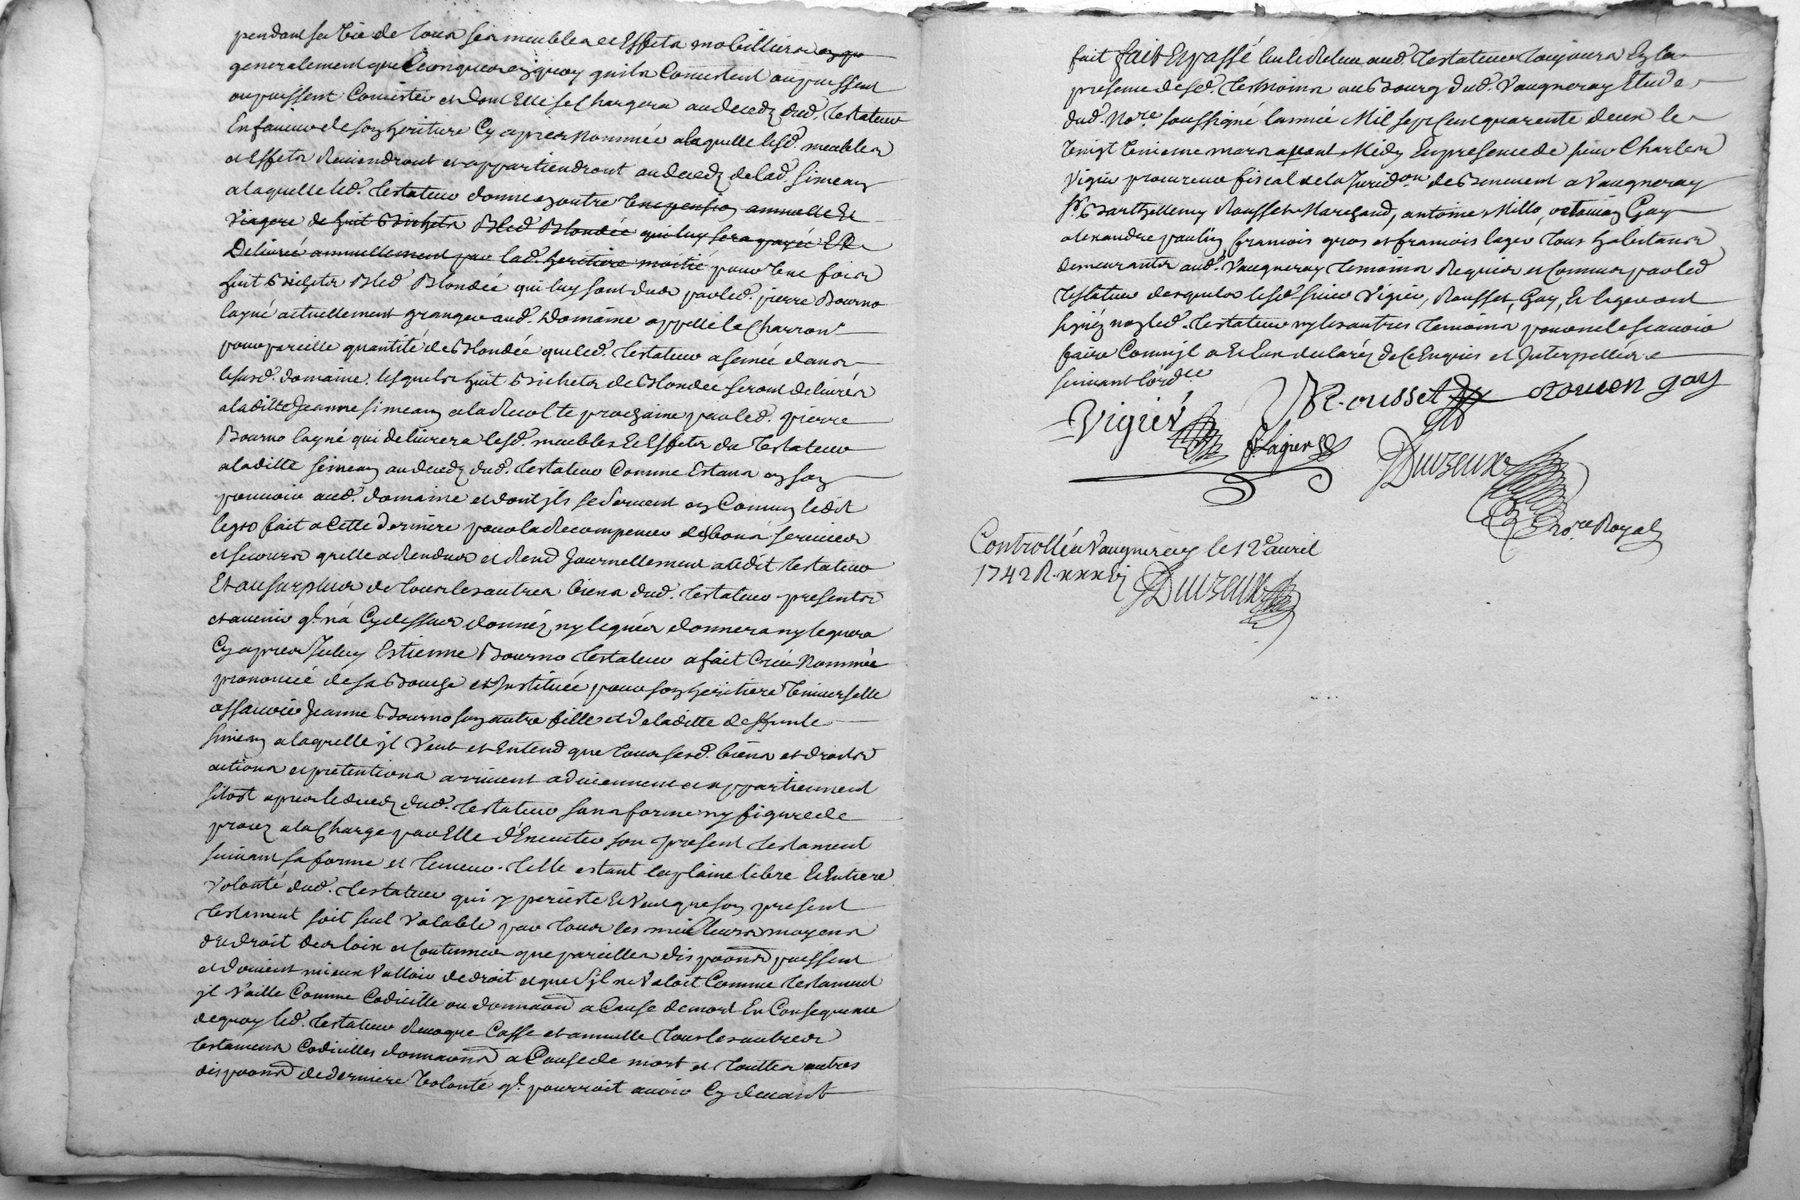 pendant sa vie de tous ses meubles et Effets mobilliers
generalement quelconques en quoy quils Consistent ou puissent
ou puissent Consister et dont Elle se Chargera au deced dud. testateur
En faveur de son heritiere Cy apres nommée a laquelle lesd. meubles
et Effets Reviendront et appartiendront au deced de lad. Simean
a laquelle led. testateur donne en outre une pension annuelle et
viagere de huit Bichets Bled Blondée qui luy sera payée Et
Delivrée annuellement par lad. heritiere moitié pour une fois
huit Bichets Bled Blondée qui luy sont dus par led. pierre Bourno
layné actuellement granger aud. Domaine appellé le Charron
pour pareille quantité de Blondée que led. testateur a semée dans
lesusd. domaine. lesquels huit Bichets de Blondée seront delivrés
a laditte Jeanne Simean a la Recolte prochaine par led. pierre
Bourno layné qui delivrera lesd. meubles Et Effets du testateur
a laditte Simean au deced dud. testateur Comme Estans en son
pouvoir aud. domaine et dont ils se servent en Commun ledit
legs fait a Cette derniere pour la Recompenser des bons services
et secours quelle a Rendus et Rend Journellement audit testateur
Et au surplus de tous les autres biens dud. testateur presents
et avenir ql n'a Cy dessus donnés ny legués donnera ny leguera
Cy apres Iceluy Estienne Bourno testateur a fait Créé Nommée
prononcée de sa Bouche et Instituée pour son heritiere Universelle
assavoir Jeanne Bourno son autre fille et de laditte deffunte
Simean a laquelle il Veut et Entend que tous sesd. biens et droits
actions et pretentions arrivent adviennent et appartiennent
sitost apres le deced dud. testateur sans forme ny figure de
procez a la Charge par Elle d'Executer son present testament
suivant sa forme et teneur. telle estant la plaine libre Et Entiere
Volonté dud. testateur qui y persiste Et Veut que son present
testament soit seul Valable par tous les meilleurs moyens
de droit des loix et Coutumes que pareilles disponõns puissent
et doivent mieux Valloir de droit et que s'jl ne Valoit Comme testament
jl Vaille Comme Codicille ou donnaõn a Cause de mort En Consequence
de quoy led. testateur Revoque Casse et annulle tous les autres
testamens Codicilles donnaõns a Cause de mort et touttes autres
disponõns de derniere Volonté ql. pourroit avoir Cy devant
fait fait Et passé leu et Releu aud. testateur toujours En la
presence desd. temoins au Bourg dud. Vaugneray Etude
dud. No.re soussigné lannée Mil sept Cent quarente deux le
Vingt unieme mars avant Midy En presence de sieur Charles
Vigier procureur fiscal de la Juridon. de Benevent a Vaugneray
Sr. Barthellemy Rousset Marchand, antoine Millo, octavien Gay
alexandre paulin francois gros et francois lager tous habitans
demeurants aud. Vaugneray temoins Requis et Connus par led.
testateur desquels lesd. sieur Vigier, Rousset, Gay, Et lager ont
signéz non led. testateur ny les autres temoins pour ne le scavoir
faire Comm'jl a Et l'ont declaréz de Ce Enquis et Interpellés
suivant lord.ce
Vigier
Rousset
octavien gay
f. lager
Duvzeux
no.re Royal
Controllé a Vaugneray le 12e avril
1742 R. xxxvj
Duvzeux